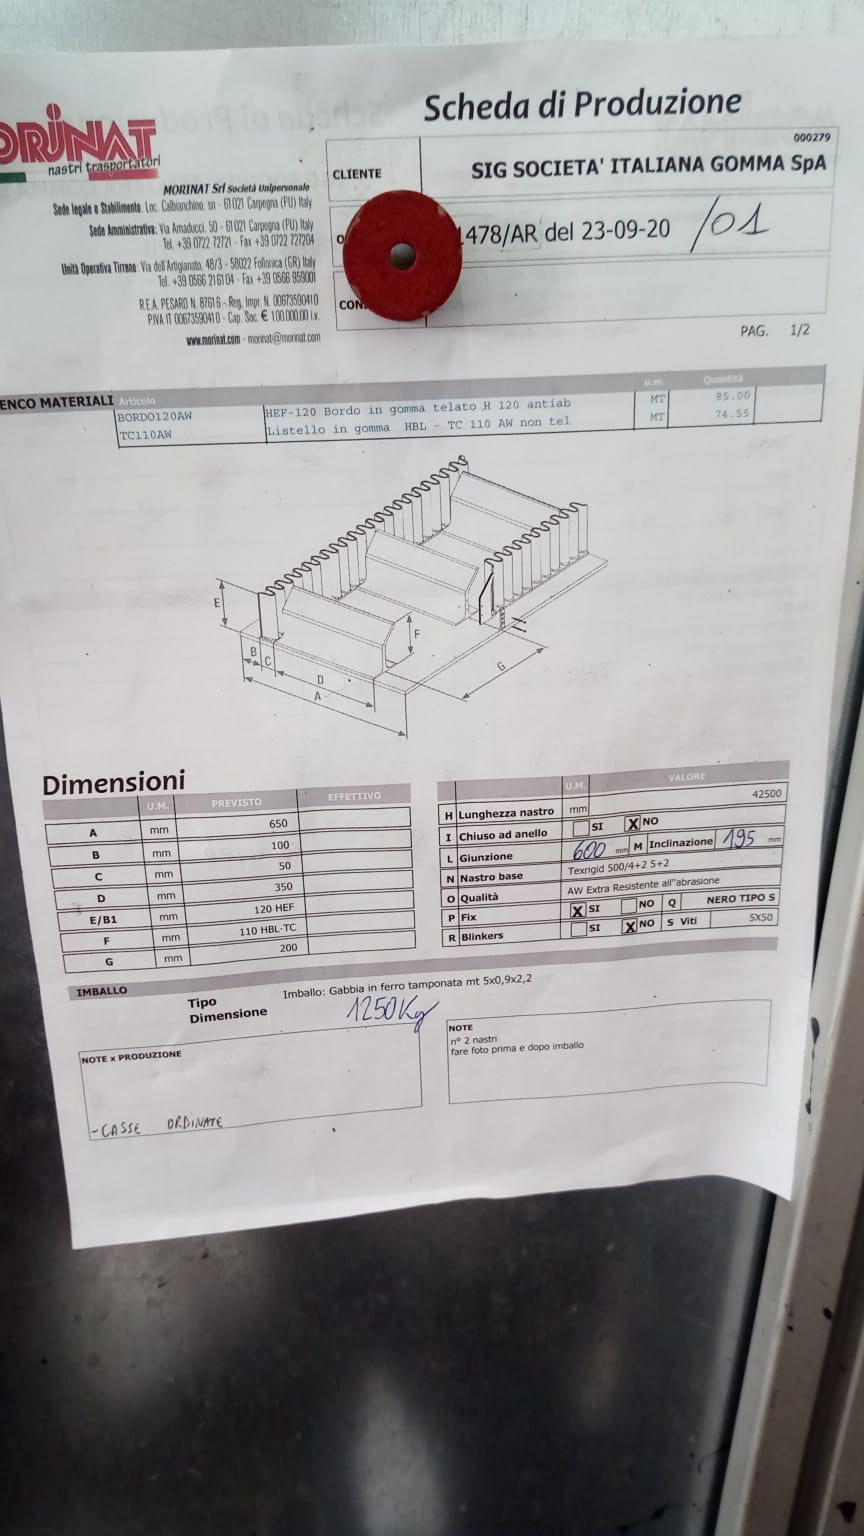 Scheda di Produzione
ORINAT
nastri trasportatori
000279
CLIENTE SIG SOCIETA' ITALIANA GOMMA SpA
MORINAT Srl Società Unipersonale
Sede legale e Stabilimento: Loc. Calbianchino, sn - 61021 Carpegna (PU) Italy
Sede Amministrativa: Via Amaducci, 50 - 61021 Carpegna (PU) Italy
Tel. +39 0722 72721 - Fax +39 0722 727204
478/AR del 23-09-20 /01
Unità Operativa Tirrena: Via dell'Artigianato, 48/3 - 58022 Follonica (GR) Italy
Tel. +39 0566 216104 - Fax +39 0566 859001
CON
R.E.A. PESARO N. 87616 - Reg. Impr. N. 00673590410
P.IVA IT 00673590410 - Cap. Soc. € 100.000,00 i.v.
www.morinat.com - morinat@morinat.com
PAG. 1/2
ENCO MATERIALI Articolo u.m. Quantità
BORDO120AW HEF-120 Bordo in gomma telato H 120 antiab MT 85.00
TC110AW Listello in gomma HBL - TC 110 AW non tel MT 74.55
E
F
B
C
D
A
G
H
Dimensioni
U.M. PREVISTO EFFETTIVO
A mm 650
B mm 100
C mm 50
D mm 350
E/B1 mm 120 HEF
F mm 110 HBL-TC
G mm 200
U.M. VALORE
H Lunghezza nastro mm 42500
I Chiuso ad anello SI X NO
L Giunzione 600 mm M Inclinazione 195 mm
N Nastro base Texrigid 500/4+2 5+2
O Qualità AW Extra Resistente all"abrasione
P Fix X SI NO Q NERO TIPO S
R Blinkers SI X NO S Viti 5X50
IMBALLO
Tipo Imballo: Gabbia in ferro tamponata mt 5x0,9x2,2
Dimensione 1250Kg
NOTE x PRODUZIONE
- CASSE ORDINATE
NOTE
n° 2 nastri
fare foto prima e dopo imballo